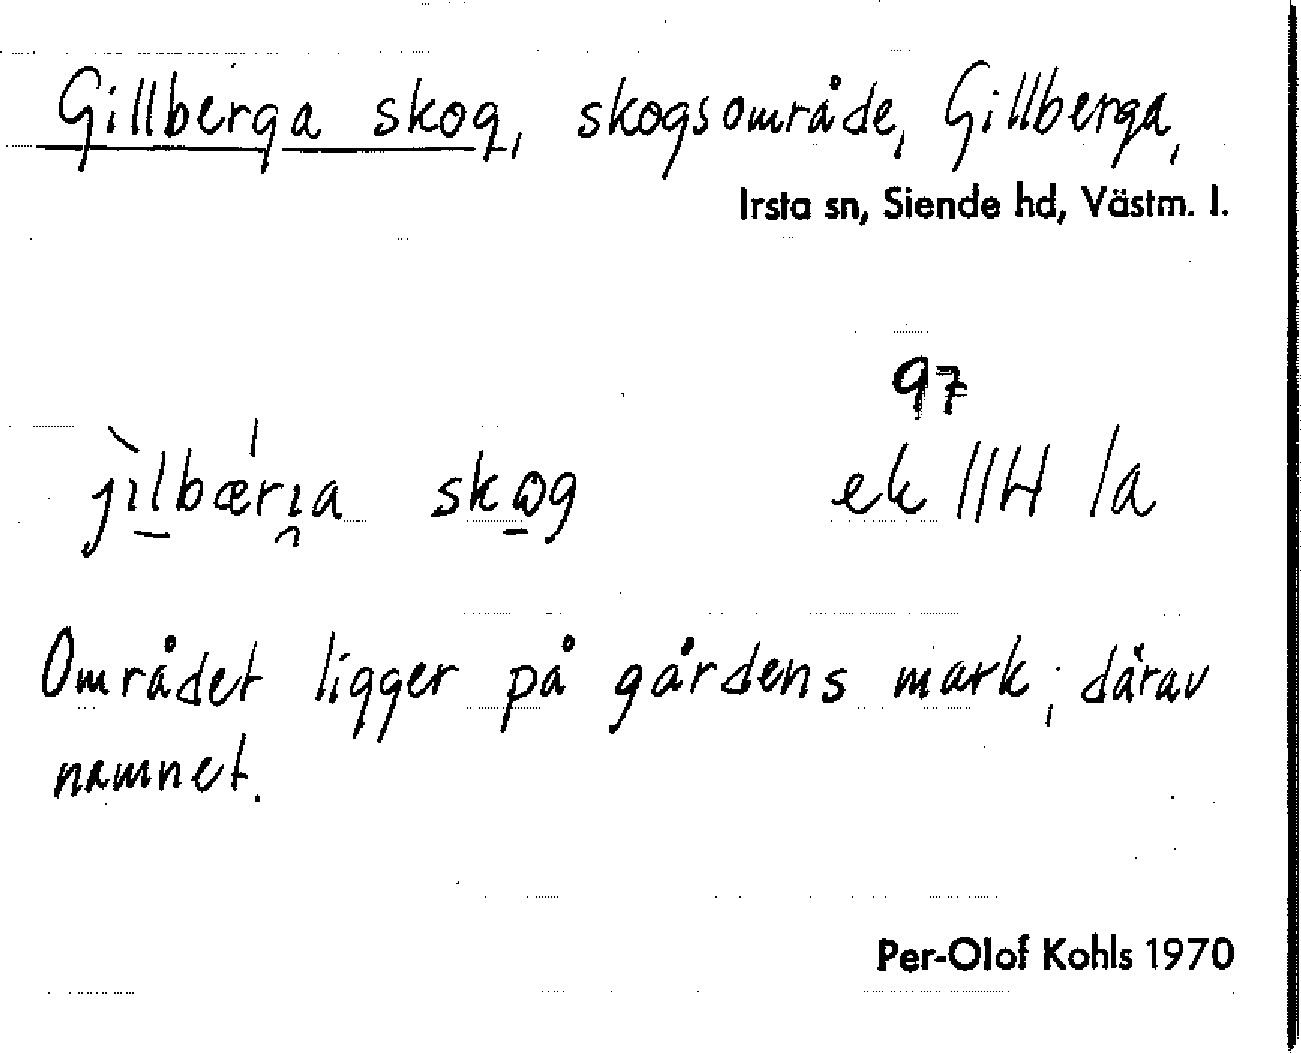 Gillberga skog, skogsområde, Gillberga,
Irsta sn, Siende hd, Västm. l.
97
jìlbǽrı̯a skog ek 11H 1a
Området ligger på gårdens mark; därav
namnet.
Per-Olof Kohls 1970